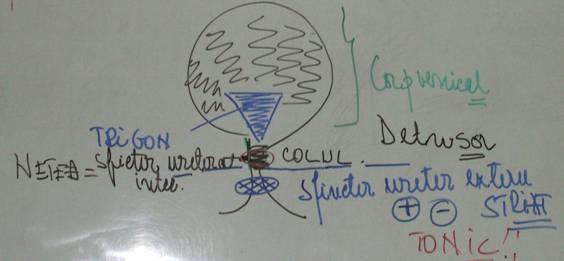 Corp vesical
Detrusor
TRIGON
NETED = sfincter uretral COLUL
inter.
sfincter ureter extern
+ - STRIAT
TONIC!!